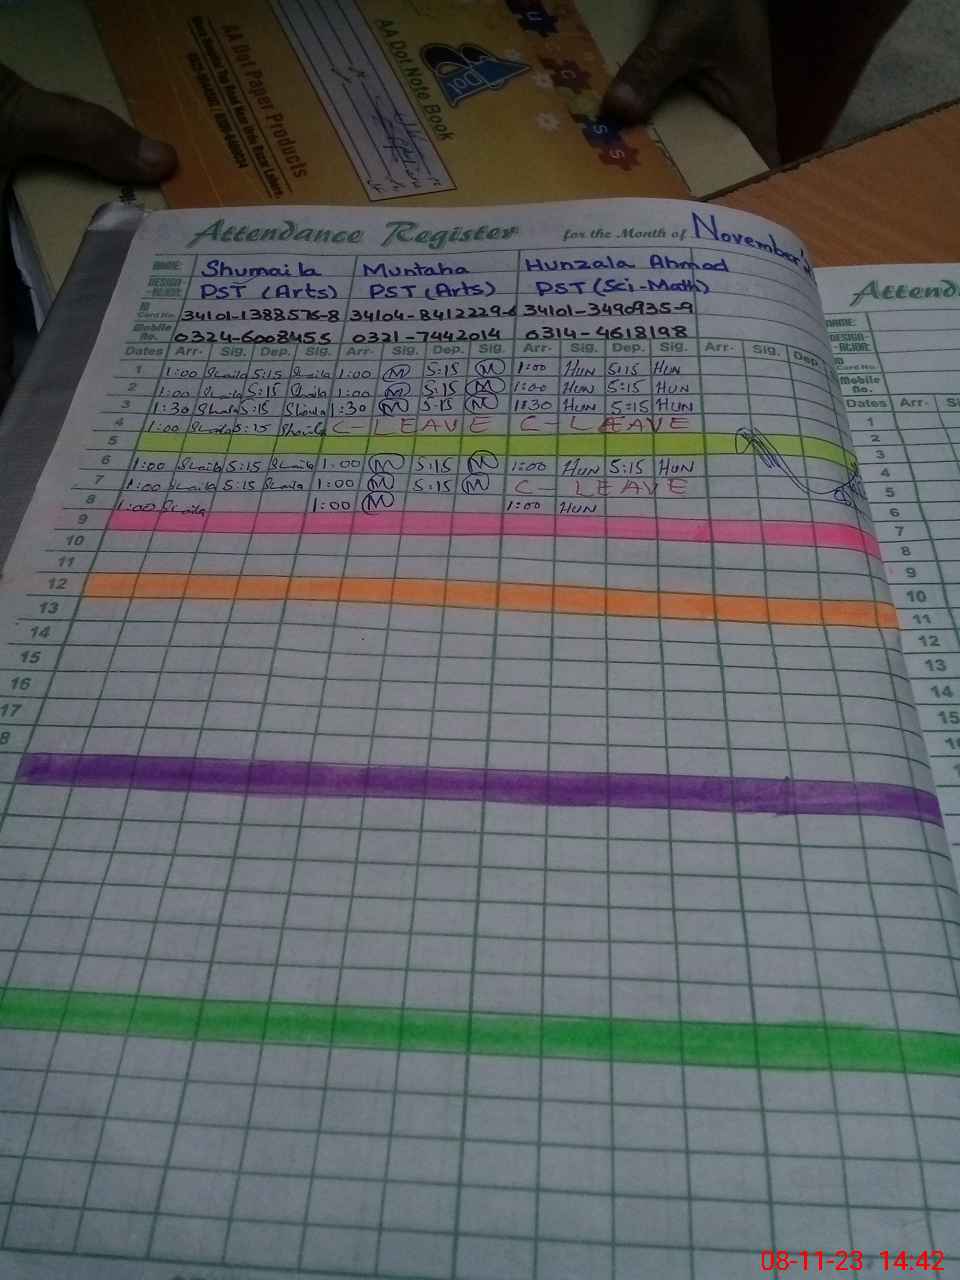 AA Dot Note Book
Dot
AA Dot Paper Products
Attendance Register for the Month of November's
NAME: Shumaila Muntaha Hunzala Ahmad
DESIGN-NATION: PST (Arts) PST (Arts) PST (Sci-Math)
ID Card No. 34101-1388576-8 34104-8412229-6 34101-3490935-9
Mobile No. 0324-6008455 0321-7442014 0314-4618198
Dates Arr. Sig. Dep. Sig. Arr. Sig. Dep. Sig. Arr. Sig. Dep. Sig. Arr. Sig. Dep.
1 1:00 Shaila 5:15 Shaila 1:00 M 5:15 M 1:00 HUN 5:15 HUN
2 1:00 Shaila 5:15 Shaila 1:00 M 5:15 M 1:00 HUN 5:15 HUN
3 1:30 Shaila 5:15 Shaila 1:30 M 5:15 M 1:30 HUN 5:15 HUN
4 1:00 Shaila 5:15 Shaila C-LEAVE C-LEAVE
5
6 1:00 Shaila 5:15 Shaila 1:00 M 5:15 M 1:00 HUN 5:15 HUN
7 1:00 Shaila 5:15 Shaila 1:00 M 5:15 M C-LEAVE
8 1:00 Shaila 1:00 M 1:00 HUN
9
10
11
12
13
14
15
16
17
8
Attend
NAME:
ID Card No.
Mobile No.
Dates Arr. S
1
2
3
4
5
6
7
8
9
10
11
12
13
14
15
08-11-23 14:42